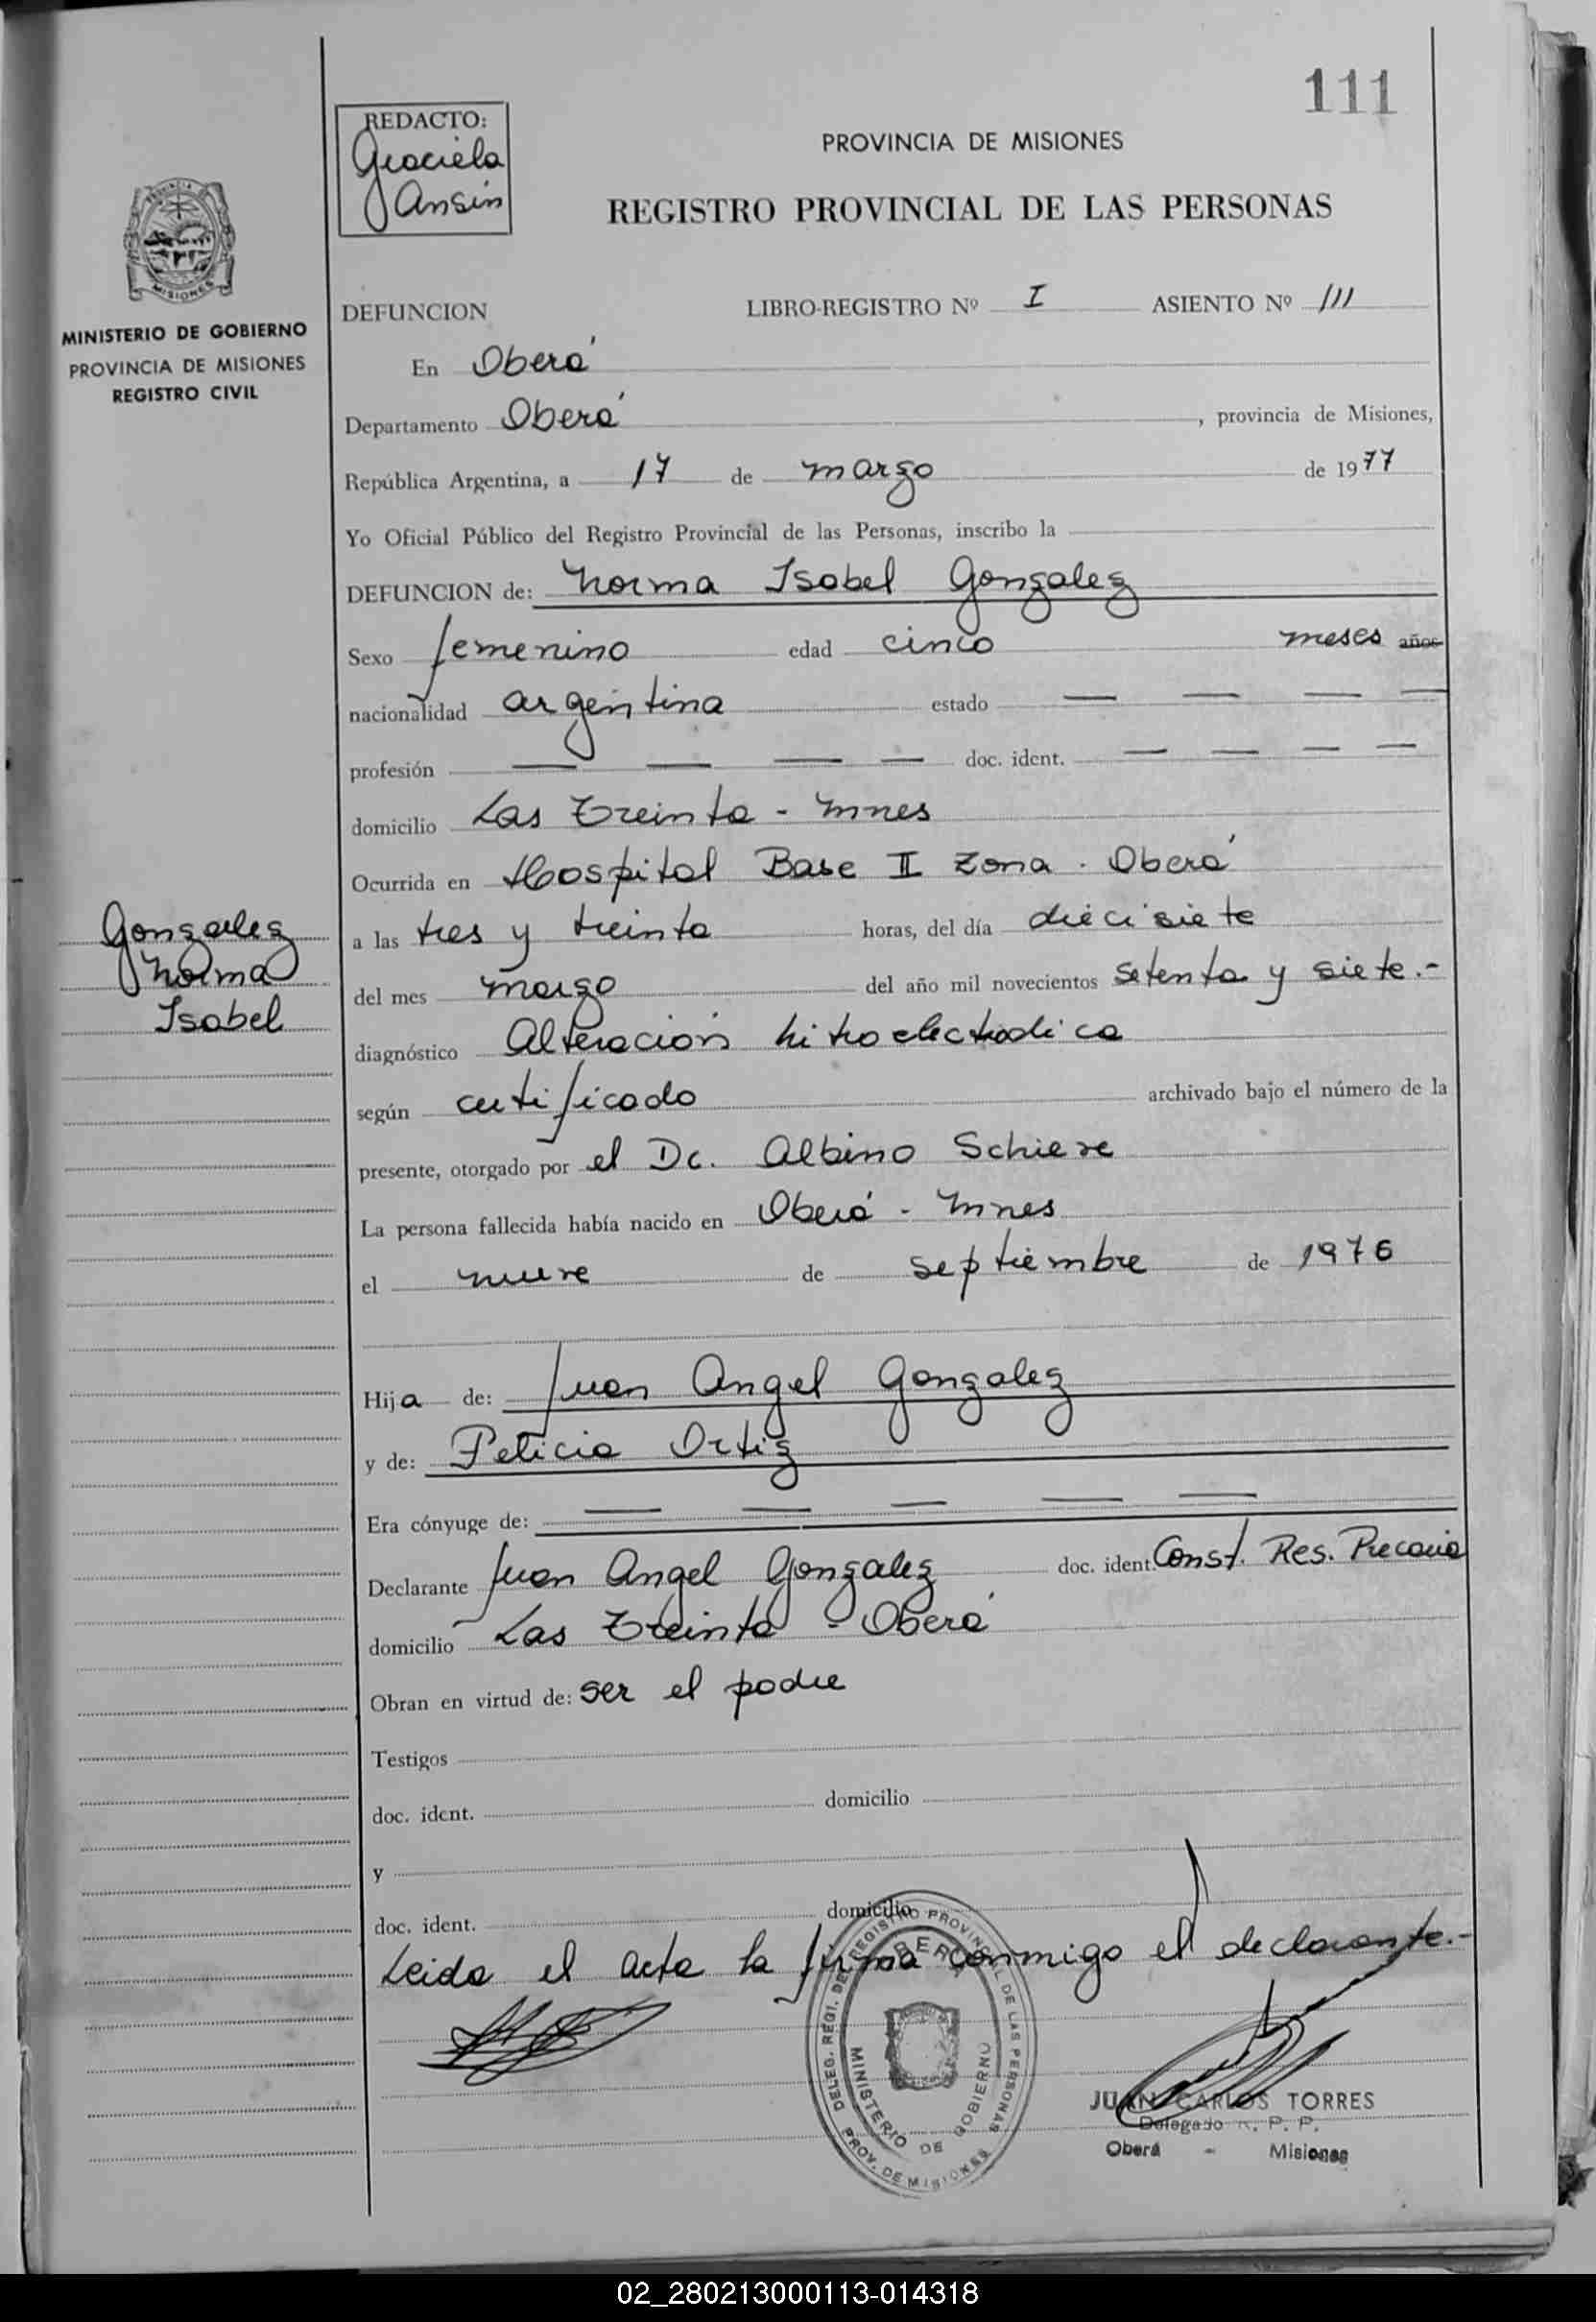 111
REDACTO:
Graciela
Ansin
PROVINCIA DE MISIONES
REGISTRO PROVINCIAL DE LAS PERSONAS
MISIONES
MINISTERIO DE GOBIERNO
PROVINCIA DE MISIONES
REGISTRO CIVIL
DEFUNCION LIBRO-REGISTRO Nº I ASIENTO Nº 111
En Oberá
Departamento Oberá, provincia de Misiones,
República Argentina, a 17 de marzo de 1977
Yo Oficial Público del Registro Provincial de las Personas, inscribo la
DEFUNCION de: Norma Isabel Gonzalez
Sexo femenino edad cinco meses años
nacionalidad argentina estado — — — —
profesión — — — — doc. ident. — — — —
domicilio Las Treinta - Mnes
Ocurrida en Hospital Base II Zona - Oberá
a las tres y treinta horas, del día diecisiete
del mes marzo del año mil novecientos setenta y siete.-
diagnóstico Alteración hitroelectrodica
según certificado archivado bajo el número de la
presente, otorgado por el Dr. Albino Schiere
La persona fallecida había nacido en Oberá - Mnes
el nueve de septiembre de 1976
Gonzalez
Norma
Isabel
Hija de: Juan Angel Gonzalez
y de: Feticia Ortiz
Era cónyuge de: — — — — —
Declarante Juan Angel Gonzalez doc. ident. Const. Res. Precaria
domicilio Las Treinta - Oberá
Obran en virtud de: ser el padre
Testigos
doc. ident. domicilio
y
doc. ident. domicilio
Leida el acta la firma conmigo el declarante.-
DELEG. REGI. DEL REGISTRO PROVINCIAL DE LAS PERSONAS
OBERA
MINISTERIO DE GOBIERNO
PROV. DE MISIONES
JUAN CARLOS TORRES
Delegado R. P. P.
Oberá - Misiones
02_280213000113-014318